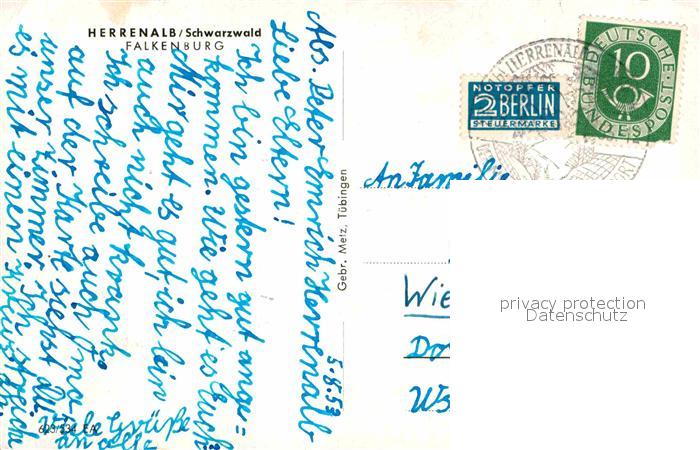 HERRENALB/Schwarzwald
FALKENBURG
Abs. Peter Emrich Herrenalb
5.8.53
Liebe Eltern!
Ich bin gestern gut ange=
kommen. Wie geht es Euch
Mir geht es gut, ich bin
auch nicht krank.
Ich schreibe auch ma
auf der Karte siehst du
unser Zimmer. Ich
es mit einem Kreuz
Liebe Grüße
an alle
623/534 EA
Gebr. Metz, Tübingen
HERRENALB
NOTOPFER
2 BERLIN
STEUERMARKE
DEUTSCHE
10
BUNDESPOST
An Familie
Wie
Do
Ws
privacy protection
Datenschutz